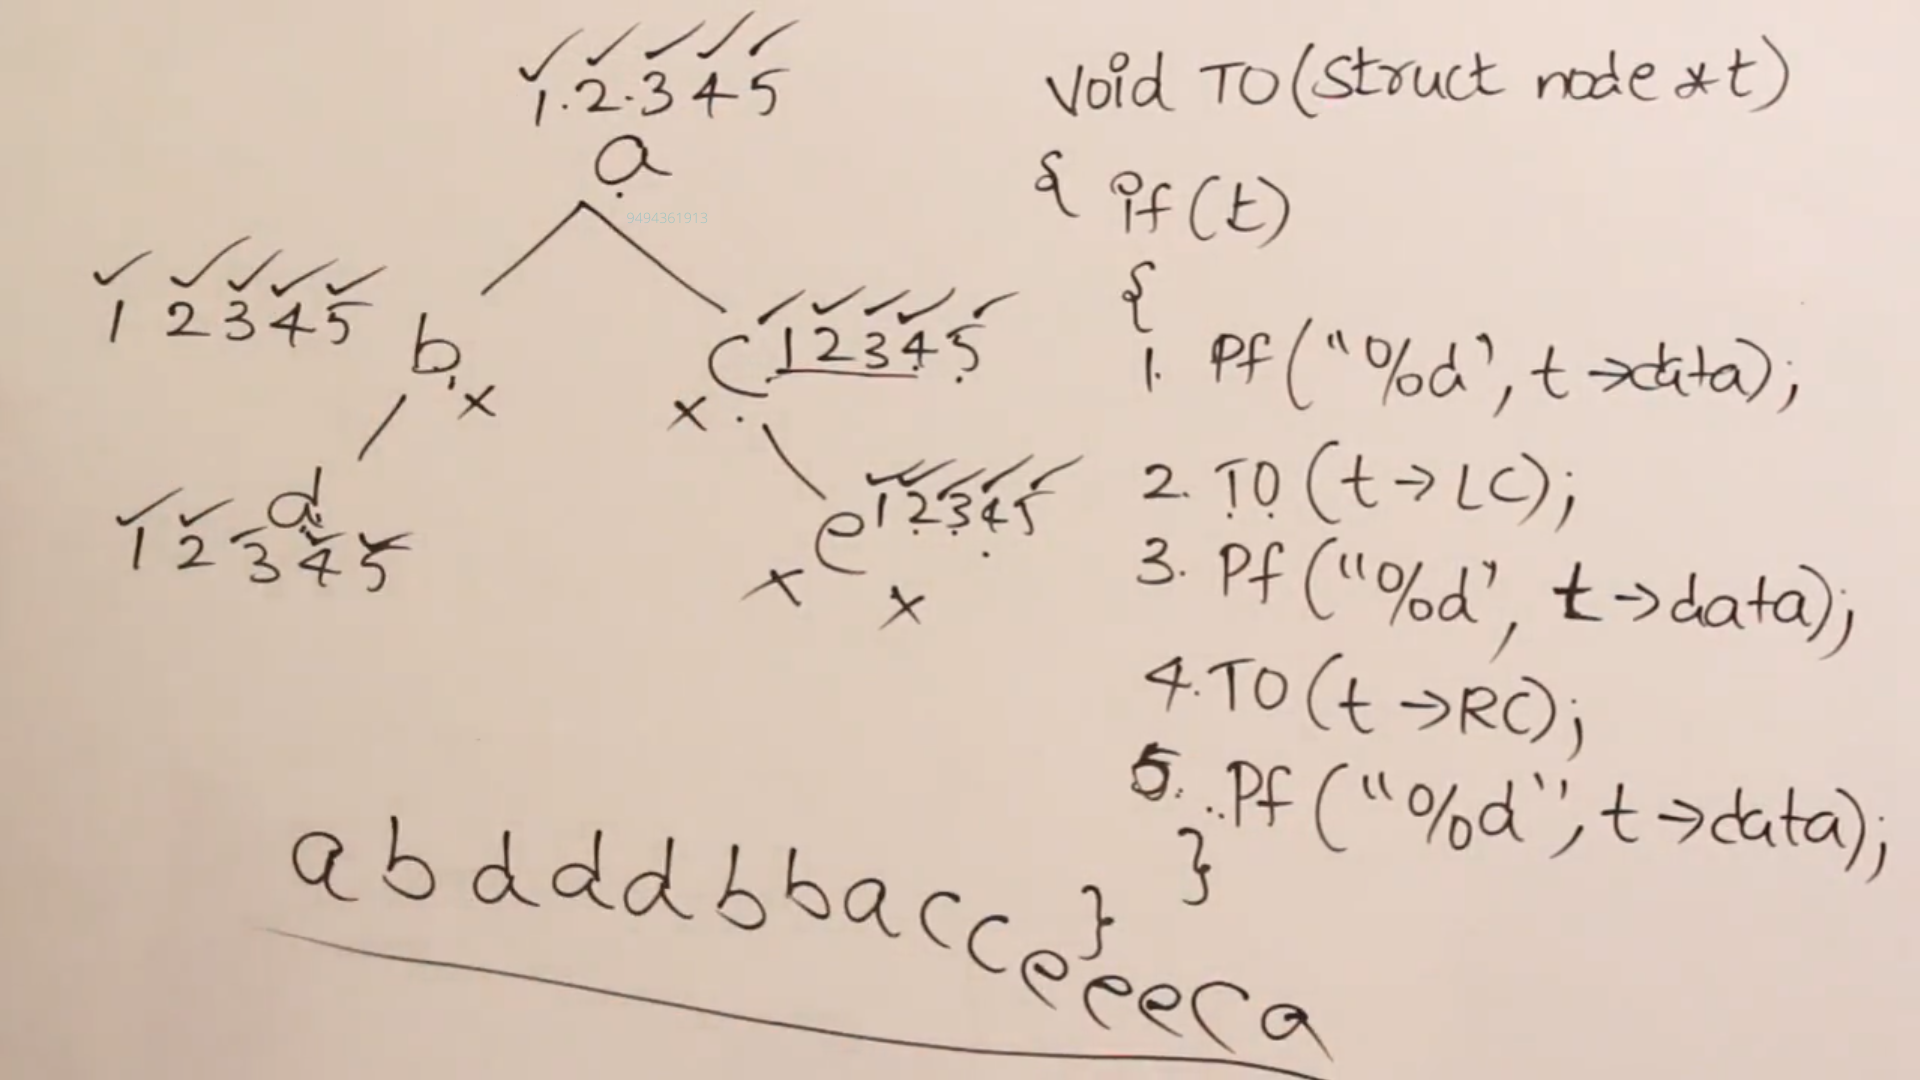 1.2.3 4 5
a
9494361913
1 2 3 4 5 b x
x c 1 2 3 4 5
d
1 2 3 4 5
e 1 2 3 4 5
x x
void TO(struct node *t)
{ if(t)
{
1. Pf("%d", t->data);
2. TO(t->LC);
3. Pf("%d", t->data);
4. TO(t->RC);
5. Pf("%d", t->data);
}
}
a b d d d b b a c c e e e c a